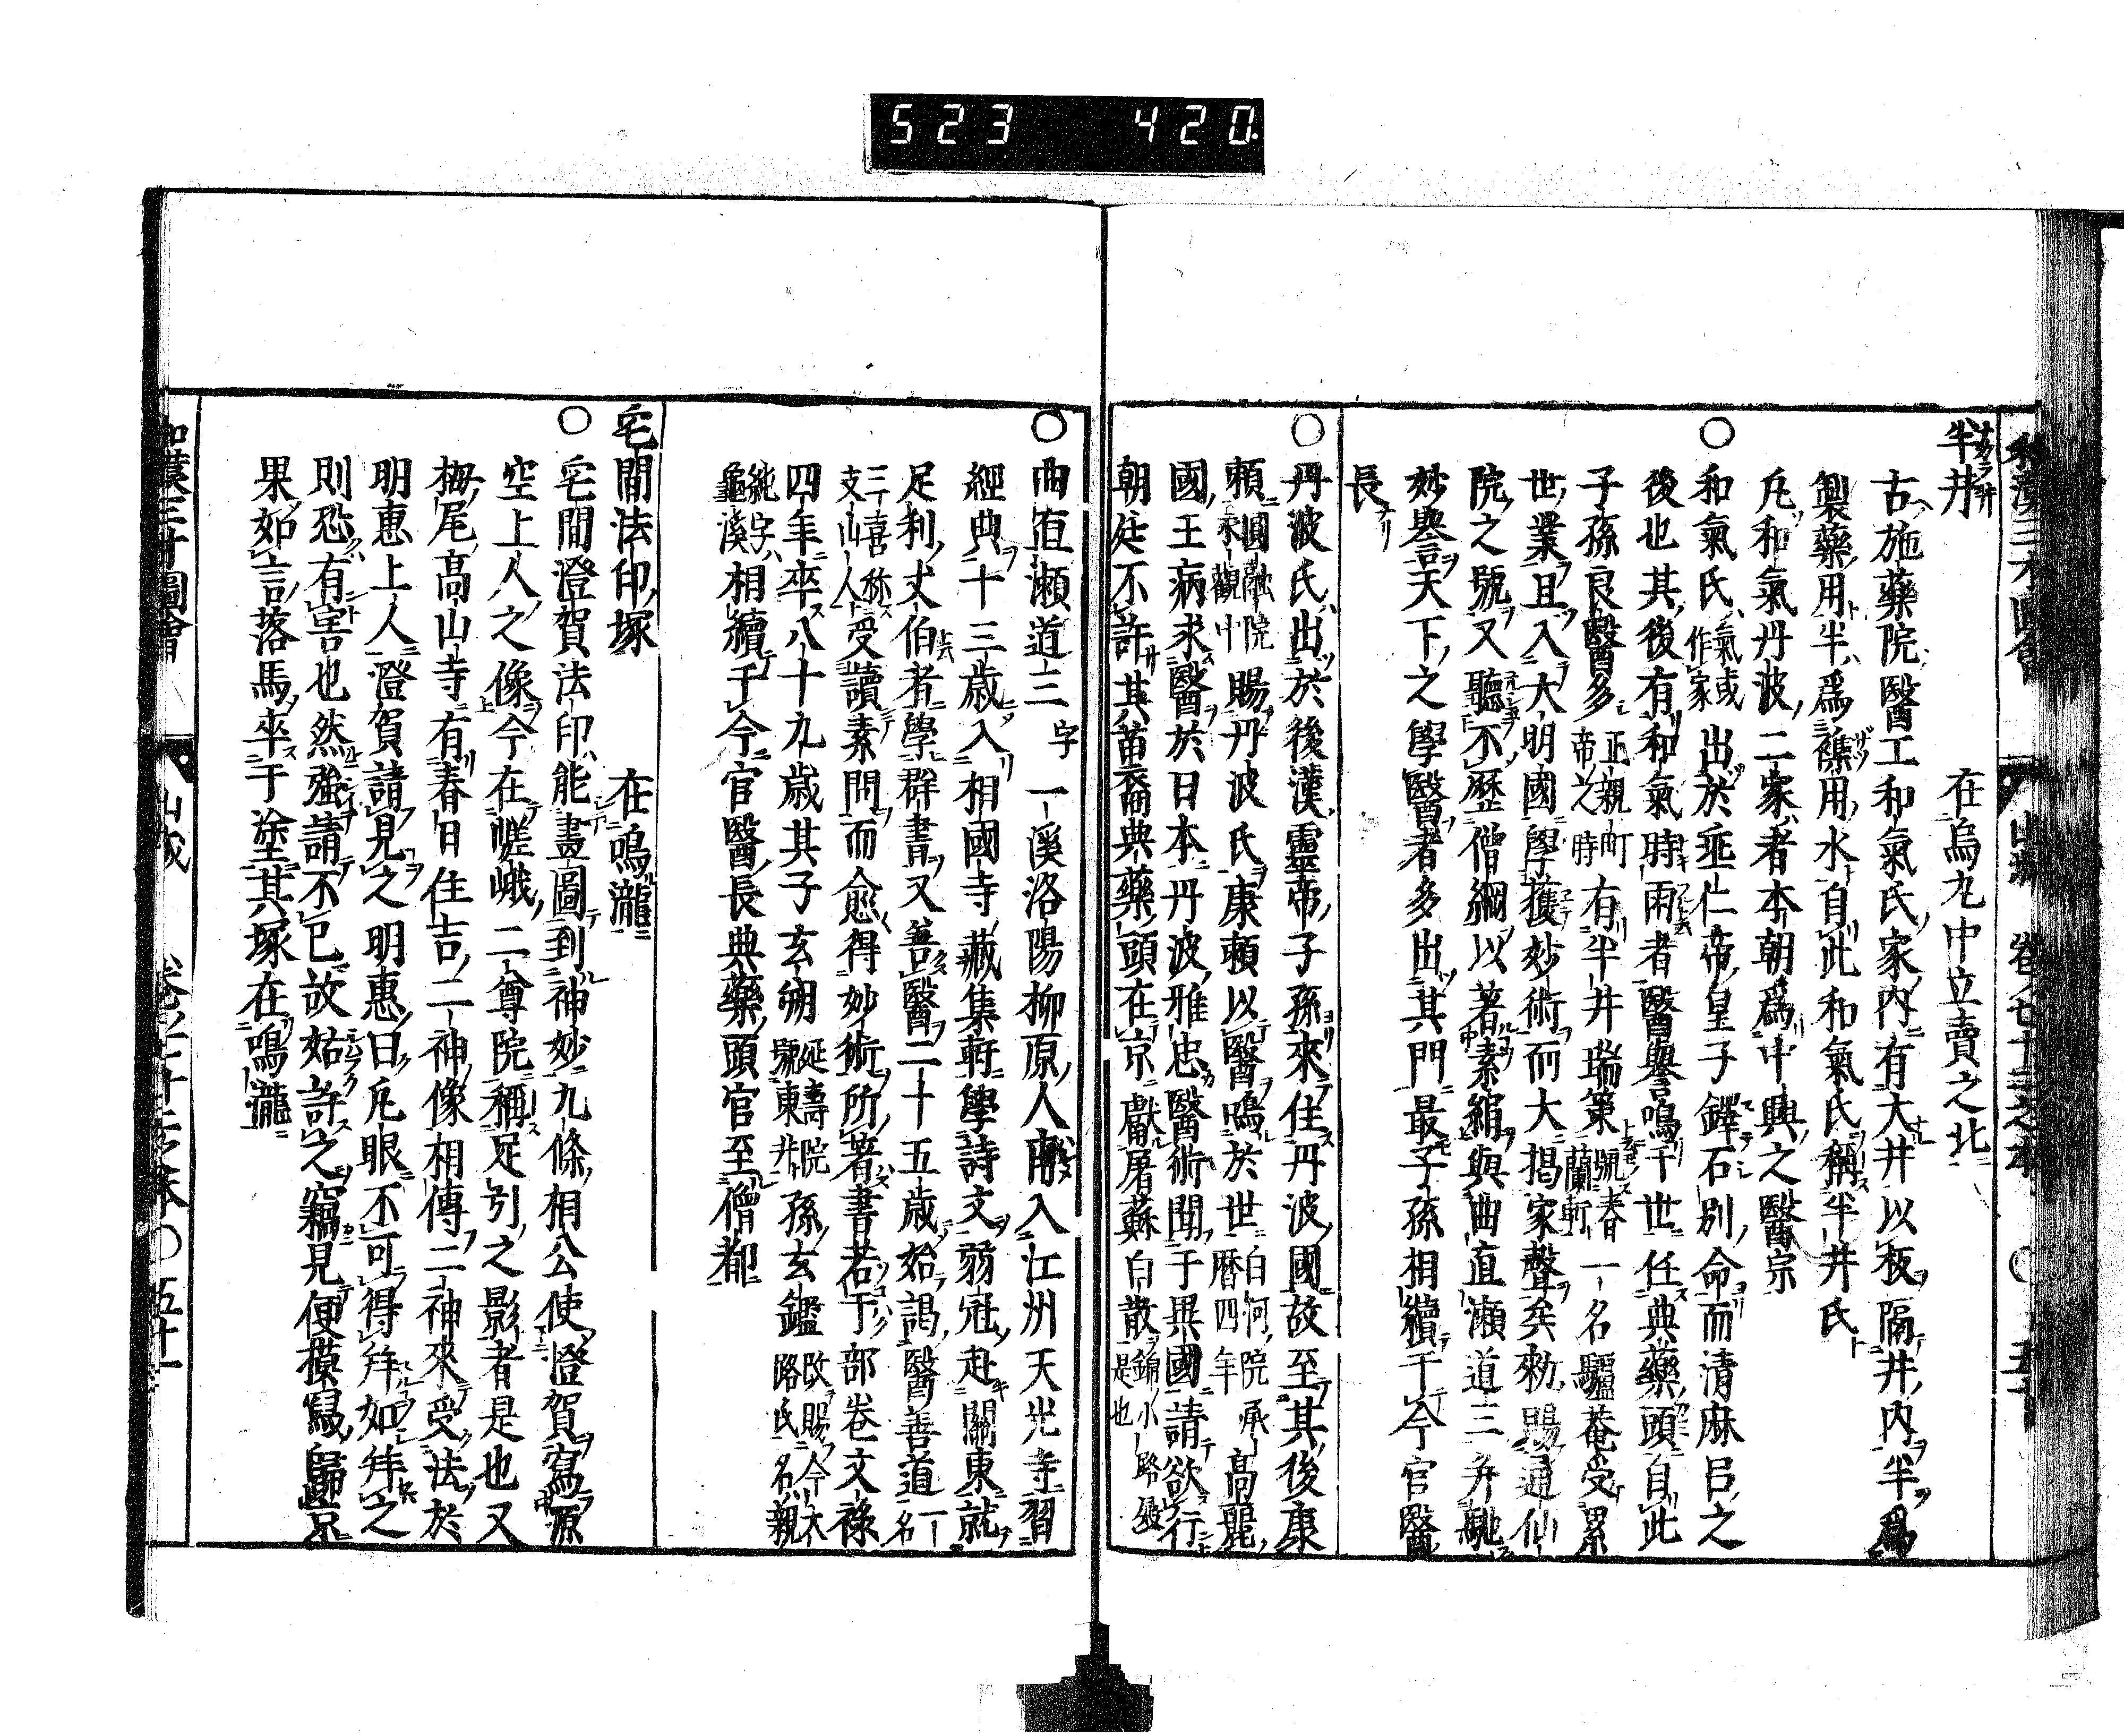 523 420
和漢三才圖會 山城 卷七十二之末 ○ 五十
半井 在烏丸中立賣之北
古施藥院醫工和氣氏家内有大井以板隔井内半爲
製藥用半爲雜用水自此和氣氏稱半井氏
凡和氣丹波二家者本朝爲中興之醫宗
○和氣氏氣或作家出於垂仁帝皇子鐸石別命而清麻呂之
後也其後有和氣時雨者醫譽鳴于世任典藥頭自此
子孫良醫多正親町帝之時有半井瑞策號春蘭軒一名驢菴受累
世業且入大明國學獲妙術而大揭家聲矣勅賜通仙
院之號又聽不歷僧綱以著素絹與曲直瀨道三并馳
妙譽天下之學醫者多出其門最子孫相續于今官醫
長
○丹波氏出於後漢靈帝子孫來住丹波國故至其後康
賴圓融院永觀中賜丹波氏康賴以醫鳴於世白河院承曆四年高麗
國王病求醫於日本丹波雅忠醫術聞于異國請欲行
朝廷不許其苗裔典藥頭在京獻屠蘇白散錦小路殿是也
○曲直瀨道三字一溪洛陽柳原人甫入江州天光寺習
經典十三歲入相國寺藏集軒學詩文弱冠赴關東就
足利丈伯者學群書又善醫二十五歲始謁醫善道一名
三喜称支山人受讀素問而愈得妙術所著書若干部卷文祿
四年卒八十九歲其子玄朔延壽院號東井孫玄鑑改賜今大路氏名親
純字龜溪相續于今官醫長典藥頭官至僧都
宅間法印塚 在鳴瀧
○宅間澄賀法印能畫圖到神妙九條相公使澄賀寫源
空上人之像今在嵯峨二尊院稱足引之影者是也又
栂尾高山寺有春日住吉二神像相傳二神來受法於
明惠上人澄賀請見之明惠曰凡眼不可得拜如拜之
則恐有害也然強請不已故姑許之竊見便摸寫歸京
果如言落馬卒于塗其塚在鳴瀧
和漢三才圖會 山城 卷七十二之末 ○ 五十一